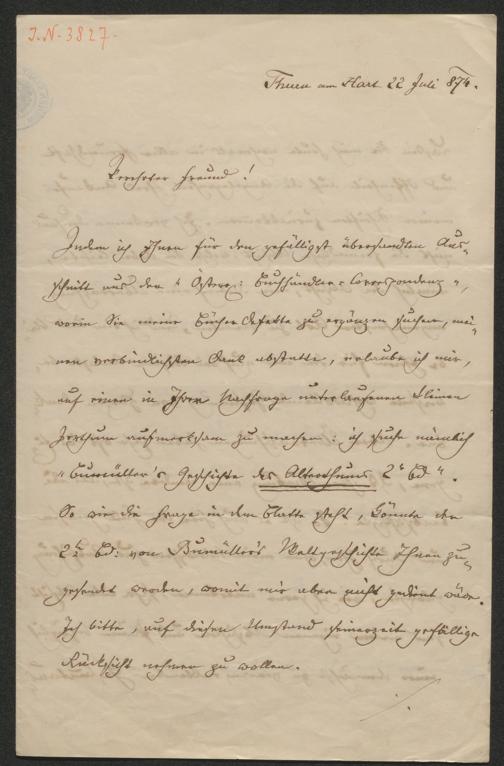 J.N. 3827.
Thuen am Hart 22 Juli 874.
Verehrter Freund!
Indem ich Ihnen für den gefälligst übersandten Aus-
schnitt aus der "Österr: Buchhändler-Correspondenz",
worin Sie meine Bücherdefekte zu ergänzen suchen, mei-
nen verbindlichsten Dank abstatte, erlaube ich mir,
auf einen in Ihrer Nachfrage unterlaufenen kleinen
Irrthum aufmerksam zu machen: ich suche nämlich
"Bumüller's Geschichte des Alterthums 2r Bd".
So wie die Frage in dem Blatte steht, könnte der
2te Bd: von Bumüller's Weltgeschichte Ihnen zu-
gesendet werden, womit mir aber nicht gedient wäre.
Ich bitte, auf diesen Umstand seinerzeit gefällige
Rücksicht nehmen zu wollen.